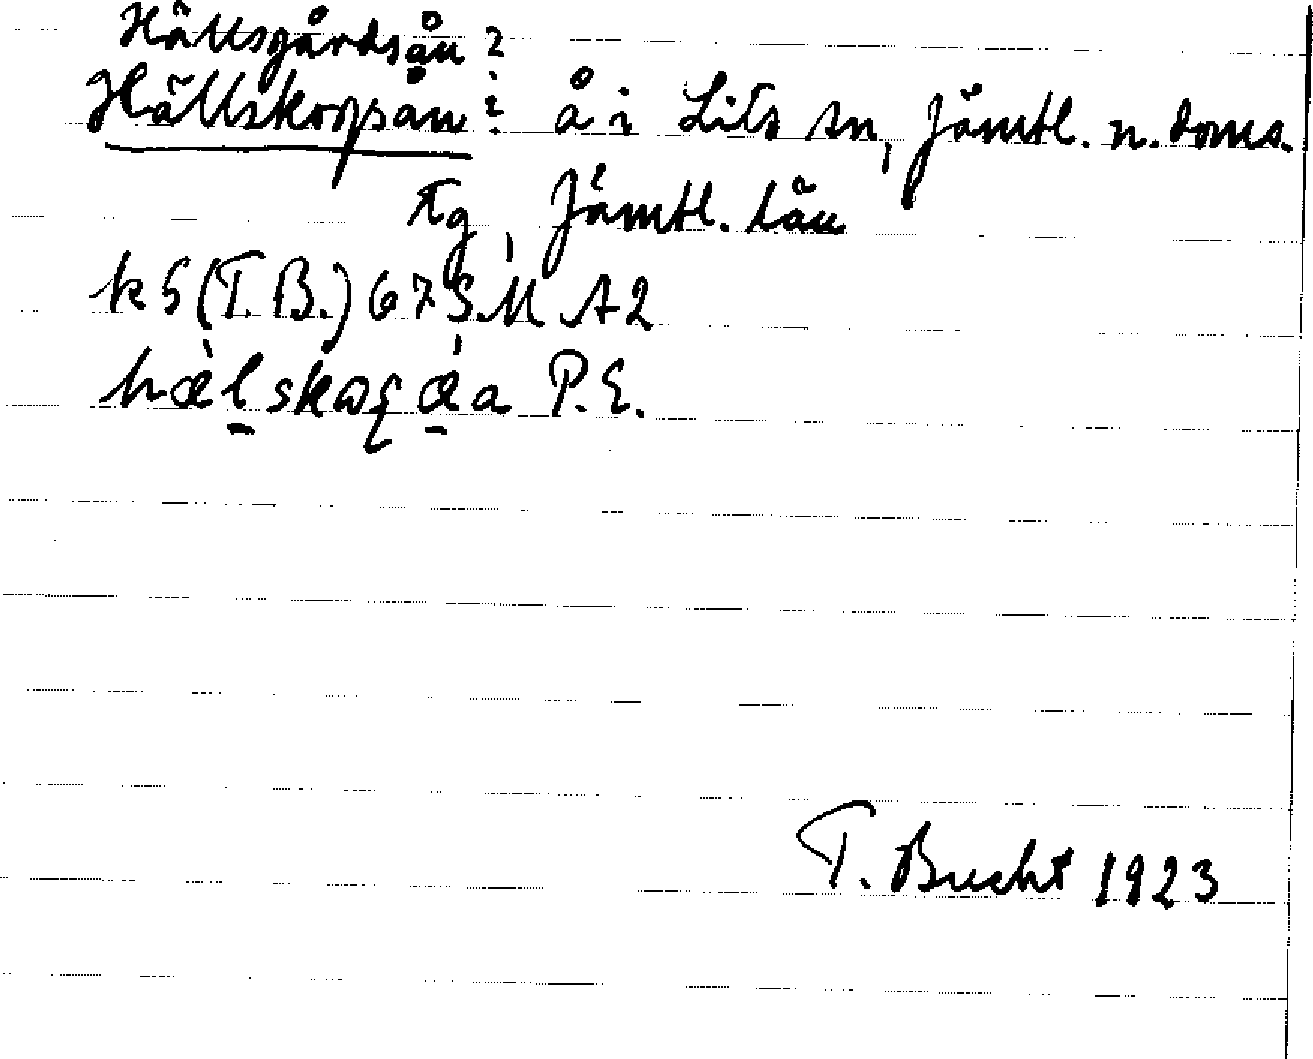 Hällsgårdsån?
Hällskorpån? å i Lits sn, Jämtl. n. doms.
Tg, Jämtl. län
k 5 (T.B.) 67 S. M A2
P.E.
T. Bucht 1923